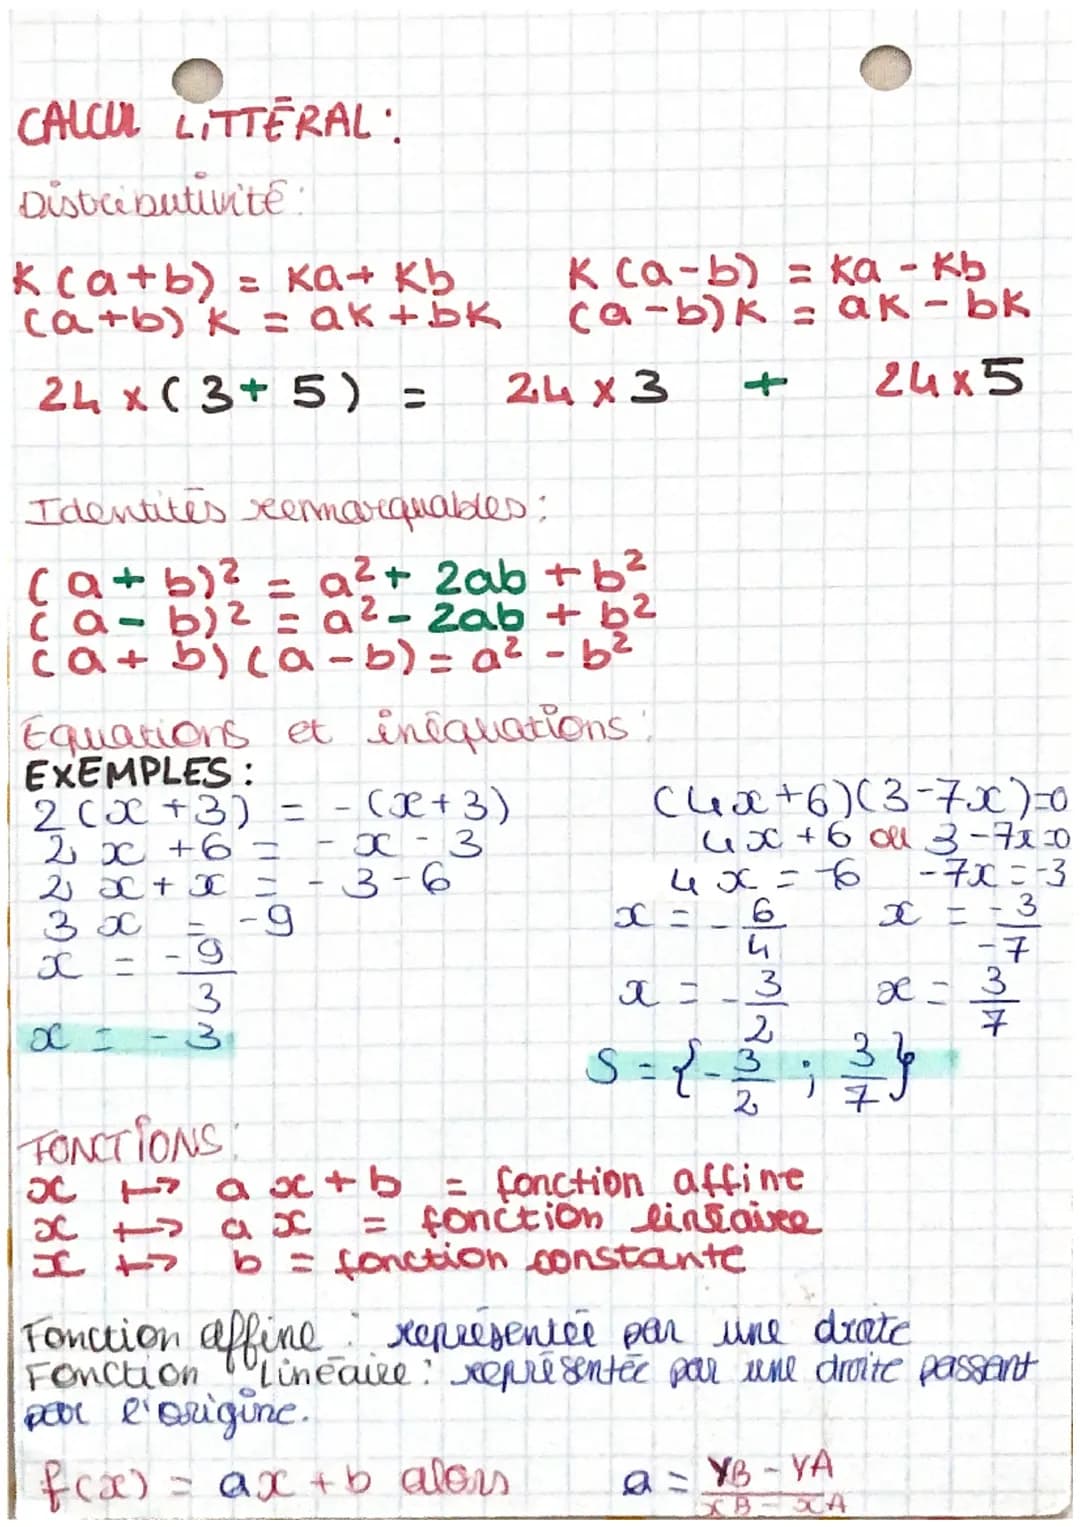 CALCUL LITTÉRAL :
Distributivité :
K(a+b) = Ka + Kb   K(a-b) = Ka - Kb
(a+b)K = aK + bK   (a-b)K = aK - bK
24 x (3 + 5) = 24 x 3 + 24 x 5
Identités remarquables :
(a + b)² = a² + 2ab + b²
(a - b)² = a² - 2ab + b²
(a + b)(a - b) = a² - b²
Equations et inéquations :
EXEMPLES :
2(x+3) = -(x+3)
2x + 6 = -x - 3
2x + x = -3 - 6
3x = -9
x = -9/3
x = -3
(4x+6)(3-7x)=0
4x+6 ou 3-7x=0
4x = -6   -7x = -3
x = -6/4   x = -3/-7
x = -3/2   x = 3/7
S = {-3/2 ; 3/7}
FONCTIONS :
x ↦ ax+b = fonction affine
x ↦ ax = fonction linéaire
x ↦ b = fonction constante
Fonction affine : représentée par une droite
Fonction Linéaire : représentée par une droite passant
par l'origine.
f(x) = ax + b alors   a = yB - yA / xB - xA